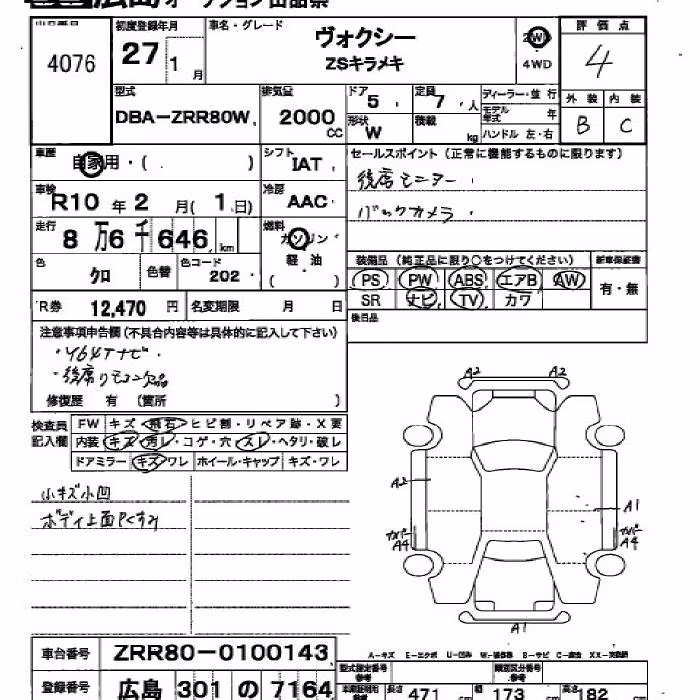 広島 オークション出品票
出品番号 4076
初度登録年月 27 1 月
車名・グレード ヴォクシー
ZSキラメキ
2WD
4WD
評価点 4
外装 内装
B C
型式 DBA-ZRR80W
排気量 2000 CC
ドア 5
定員 7 人
形状 W
積載 kg
ディーラー・並行
モデル年式 年
ハンドル 左・右
車歴 自家用・( )
シフト IAT
冷房 AAC
車検 R10 年 2 月 ( 1 日)
走行 8 万 6 千 646 km
燃料 ガソリン
軽油
( )
色 クロ 色替 色コード 202
R券 12,470 円 名変期限 月 日
セールスポイント(正常に機能するものに限ります)
後席モニター
バックカメラ
装備品(純正品に限り○をつけてください) 新車保証書
PS PW ABS エアB AW 有・無
SR ナビ TV カワ
後日品
注意事項申告欄(不具合内容等は具体的に記入して下さい)
・後席リモコン欠品
修復歴 有 (箇所 )
検査員記入欄
FW キズ・飛石・ヒビ割・リペア跡・X要
内装 キズ・汚レ・コゲ・穴・スレ・ヘタリ・破レ
ドアミラー キズ・ワレ ホイール・キャップ キズ・ワレ
小キズ小凹
ボディ上面
A2 A2
A2
A1
カバー A4
カバー A4
A1
車台番号 ZRR80-0100143
登録番号 広島 301 の 7164
A-キズ E-エクボ U-凹み W-補修春 B-サビ C-腐食 XX-交換済
型式指定番号参考
類別区分番号参考
長さ 471 cm 幅 173 cm 高さ 182 cm